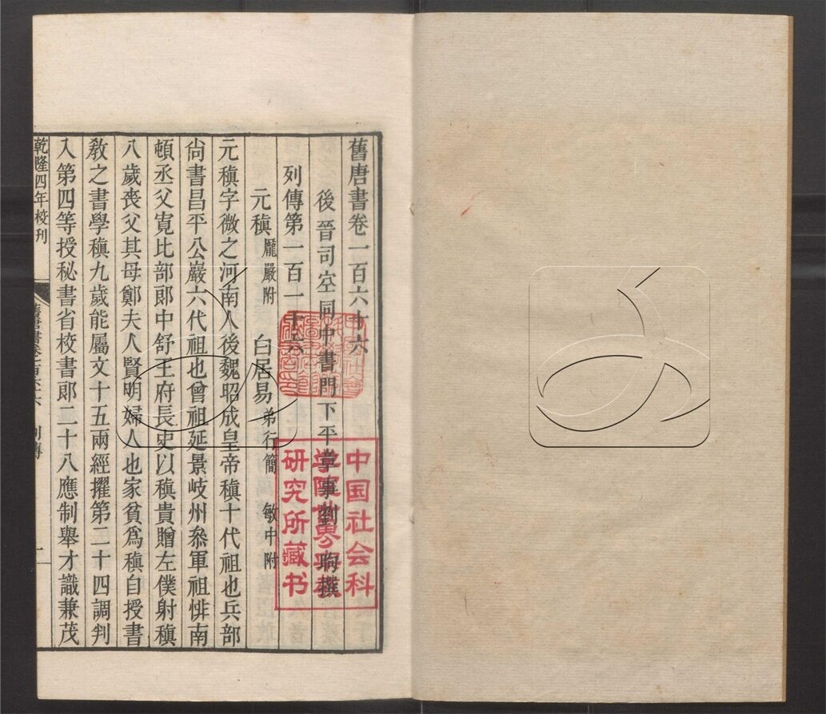 舊唐書卷一百六十六
後晉司空同中書門下平章事劉昫撰
列傳第一百一十六
元稹 龐嚴附 白居易 弟行簡 敏中附
元稹字微之河南人後魏昭成皇帝稹十代祖也兵部
尙書昌平公巖六代祖也曾祖延景岐州叅軍祖悱南
頓丞父寬比部郎中舒王府長史以稹貴贈左僕射稹
八歲喪父其母鄭夫人賢明婦人也家貧爲稹自授書
敎之書學稹九歲能屬文十五兩經擢第二十四調判
入第四等授秘書省校書郎二十八應制舉才識兼茂
乾隆四年校刊
舊唐書卷一百六十六 列傳
一
中国社会科
学院世界
研究所藏书